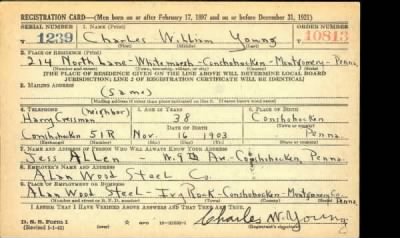 REGISTRATION CARD—(Men born on or after February 17, 1897 and on or before December 31, 1921)
SERIAL NUMBER 1. NAME (Print) ORDER NUMBER
1239 Charles William Young 10813
(First) (Middle) (Last)
2. PLACE OF RESIDENCE (Print)
214 North Lane - Whitemarsh - Conshohocken - Montgomery - Penna.
(Number and street) (Town, township, village, or city) (County) (State)
[THE PLACE OF RESIDENCE GIVEN ON THE LINE ABOVE WILL DETERMINE LOCAL BOARD
JURISDICTION; LINE 2 OF REGISTRATION CERTIFICATE WILL BE IDENTICAL]
3. MAILING ADDRESS
(Same)
[Mailing address if other than place indicated on line 2. If same insert word same]
4. TELEPHONE 5. AGE IN YEARS 6. PLACE OF BIRTH
(neighbor)
Harry Cressman 38 Conshohocken
DATE OF BIRTH (Town or county)
Conshohocken 51R Nov. 16 1903 Penna.
(Exchange) (Number) (Mo.) (Day) (Yr.) (State or country)
7. NAME AND ADDRESS OF PERSON WHO WILL ALWAYS KNOW YOUR ADDRESS
Jess Allen - W. 9th Av. - Conshohocken, Penna.
8. EMPLOYER'S NAME AND ADDRESS
Alan Wood Steel Co.
9. PLACE OF EMPLOYMENT OR BUSINESS
Alan Wood Steel - Ivy Rock - Conshohocken - Montgomery Co.
(Number and street or R. F. D. number) (Town) (County) (State)
I AFFIRM THAT I HAVE VERIFIED ABOVE ANSWERS AND THAT THEY ARE TRUE.
D. S. S. Form 1
(Revised 1-1-42) GPO Charles W. Young